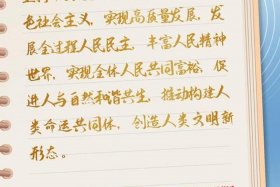 色社会主义，实现高质量发展，发
展全过程人民民主，丰富人民精神
世界，实现全体人民共同富裕，促
进人与自然和谐共生，推动构建人
类命运共同体，创造人类文明新
形态。